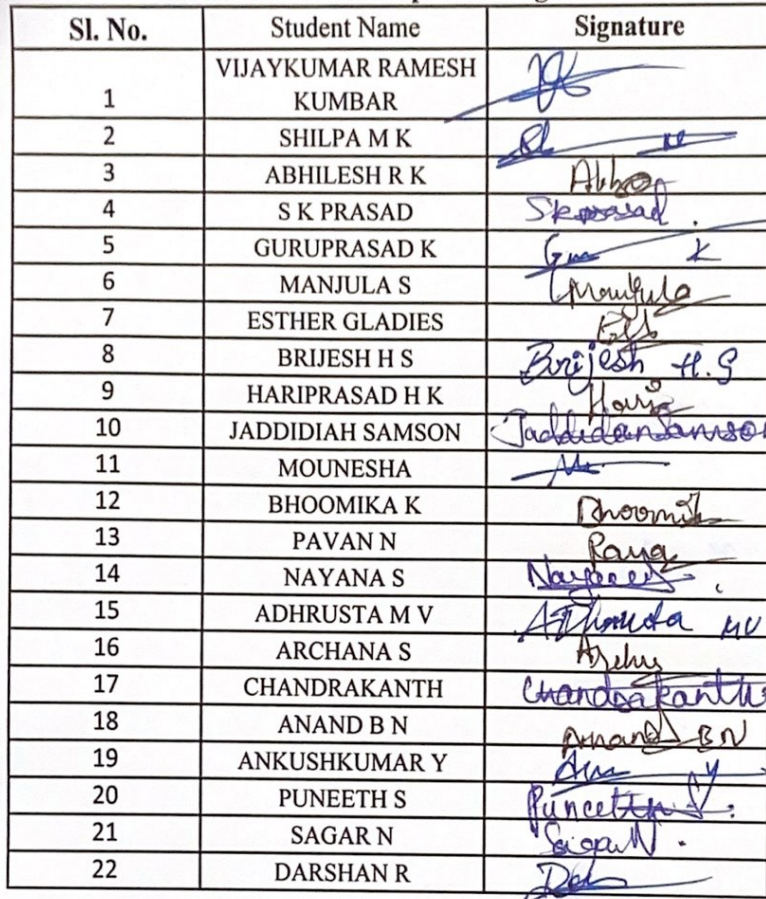 Sl. No. Student Name Signature
VIJAYKUMAR RAMESH
1 KUMBAR
2 SHILPA M K
3 ABHILESH R K
4 S K PRASAD Skprasad
5 GURUPRASAD K K
6 MANJULA S Manjula
7 ESTHER GLADIES
8 BRIJESH H S Brijesh H.S
9 HARIPRASAD H K Hari
10 JADDIDIAH SAMSON
11 MOUNESHA
12 BHOOMIKA K
13 PAVAN N
14 NAYANA S
15 ADHRUSTA M V MV
16 ARCHANA S
17 CHANDRAKANTH Chandrakanth
18 ANAND B N Anand BN
19 ANKUSHKUMAR Y Y
20 PUNEETH S Puneeth S.
21 SAGAR N Sagar N.
22 DARSHAN R